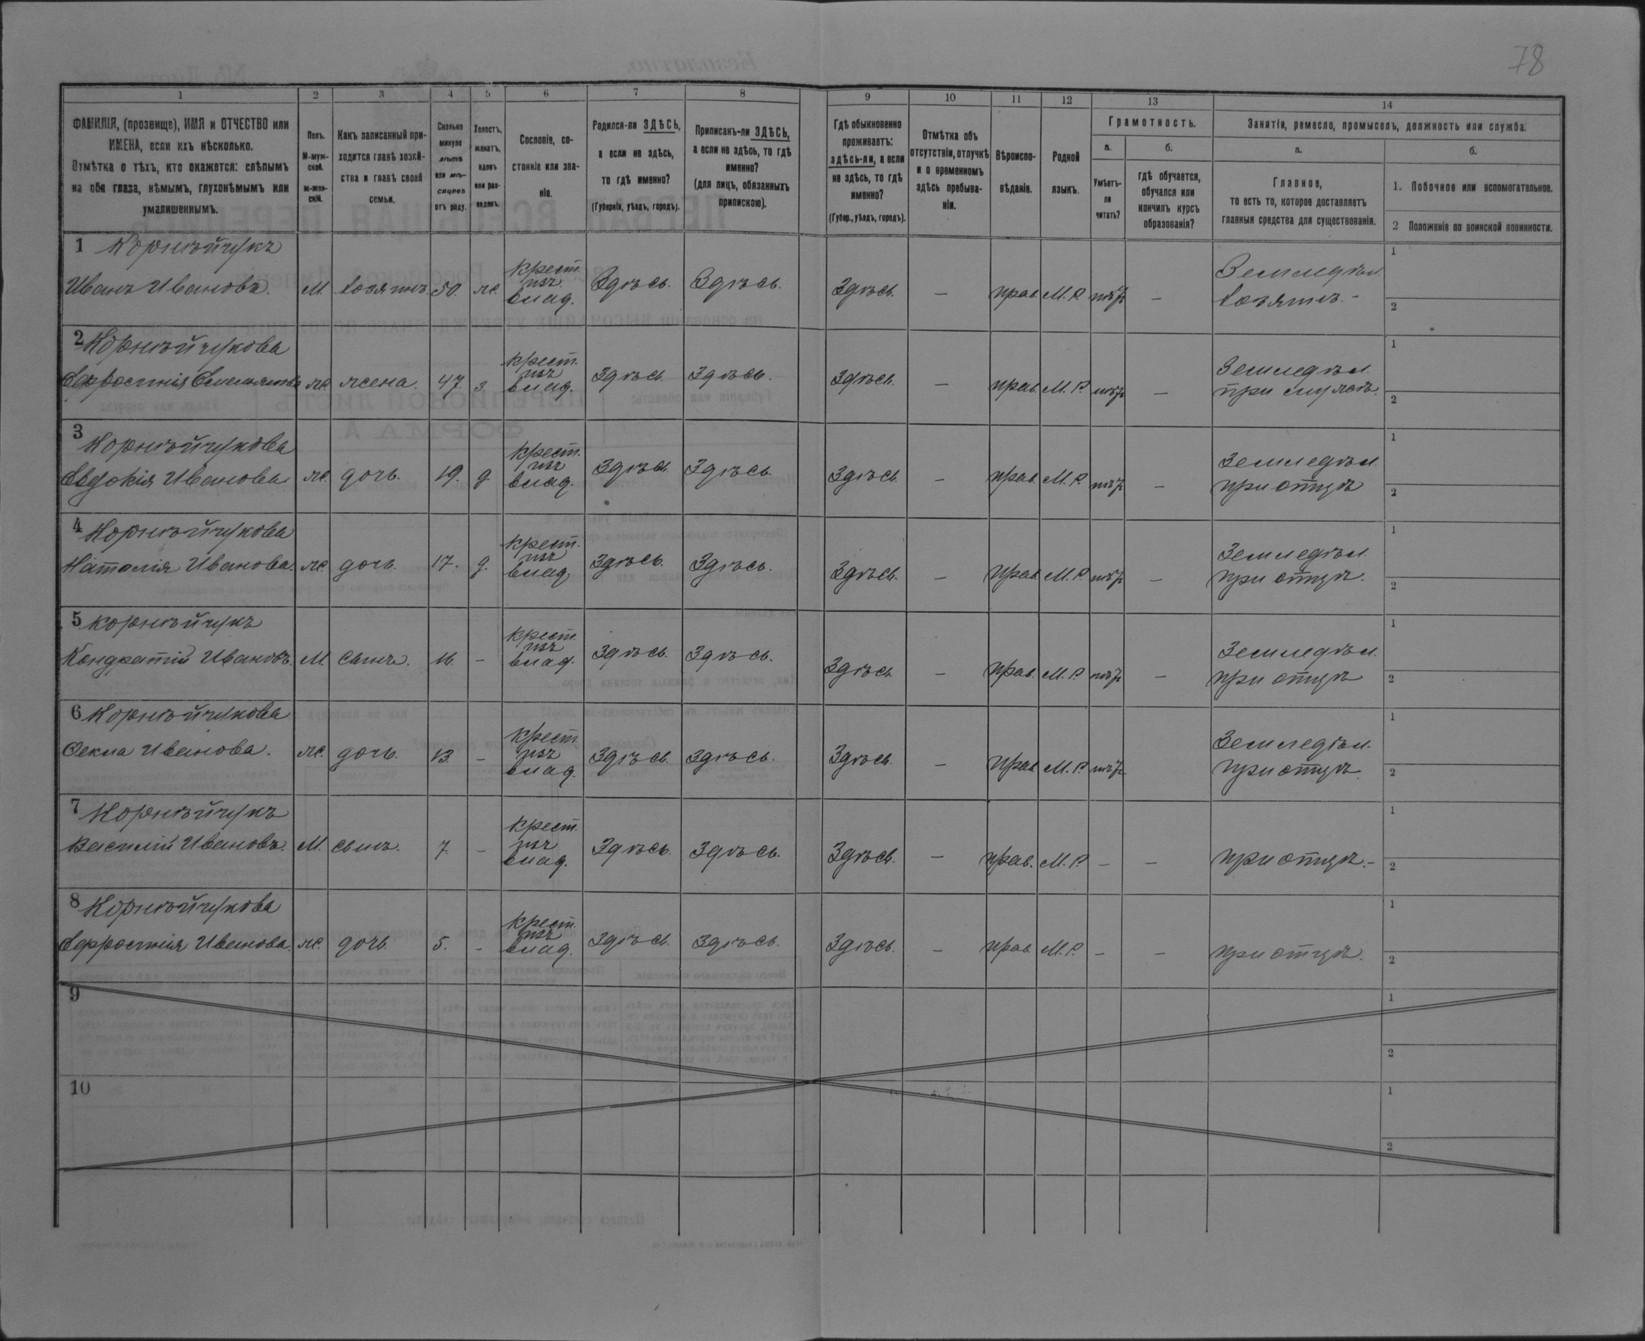 78
1 2 3 4 5 6 7 8 9 10 11 12 13 14
ФАМИЛІЯ, (прозвище), ИМЯ и ОТЧЕСТВО или
ИМЕНА, если ихъ нѣсколько.
Отмѣтка о тѣхъ, кто окажется: слѣпымъ
на оба глаза, нѣмымъ, глухонѣмымъ или
умалишеннымъ.
Полъ.
М-муж-
ской.
Ж-жен-
скій.
Какъ записанный при-
ходится главѣ хозяй-
ства и главѣ своей
семьи.
Сколько
минуло
лѣтъ
или мѣ-
сяцевъ
отъ роду.
Холостъ,
женатъ,
вдовъ
или раз-
веденъ.
Сословіе, со-
стояніе или зва-
ніе.
Родился-ли ЗДѢСЬ,
а если не здѣсь,
то гдѣ именно?
(Губернія, уѣздъ, городъ).
Приписанъ-ли ЗДѢСЬ,
а если не здѣсь, то гдѣ
именно?
(для лицъ, обязанныхъ
припискою).
Гдѣ обыкновенно
проживаетъ:
здѣсь-ли, а если
не здѣсь, то гдѣ
именно?
(Губер., уѣздъ, городъ).
Отмѣтка объ
отсутствіи, отлучкѣ
и о временномъ
здѣсь пребыва-
ніи.
Вѣроиспо-
вѣданіе.
Родной
языкъ.
Грамотность.
а.
Умѣетъ-
ли
читать?
б.
гдѣ обучается,
обучался или
кончилъ курсъ
образованія?
Занятіе, ремесло, промыселъ, должность или служба.
а.
Главное,
то есть то, которое доставляетъ
главныя средства для существованія.
б.
1. Побочное или вспомогательное.
2 Положеніе по воинской повинности.
1 Корнѣйчукъ
Иванъ Ивановъ. М. хозяинъ 50. ж. крест. изъ влад. Здѣсь. Здѣсь. Здѣсь. — прав. М.Р. нѣтъ — Земледѣл. хозяинъ. - 1 2
2 Корнѣйчукова
Ефросинія ж. жена. 47. з. крест. изъ влад. Здѣсь. Здѣсь. Здѣсь. — прав. М.Р. нѣтъ — Земледѣл. при мужѣ. 1 2
3 Корнѣйчукова
Евдокія Иванова ж. дочь. 19. д. крест. изъ влад. Здѣсь Здѣсь Здѣсь — прав. М.Р. нѣтъ — Земледѣл. при отцѣ 1 2
4 Корнѣйчукова
Наталія Иванова ж. дочь. 17. д. крест. изъ влад. Здѣсь. Здѣсь. Здѣсь. — прав. М.Р. нѣтъ — Земледѣл. при отцѣ. 1 2
5 Корнѣйчукъ
Кондратій Ивановъ. М сынъ. 16. - крест. изъ влад. Здѣсь. Здѣсь. Здѣсь — прав. М.Р. нѣтъ — Земледѣл. при отцѣ 1 2
6 Корнѣйчукова
Ѳекла Иванова. ж. дочь. 13. - крест. изъ влад. Здѣсь. Здѣсь. Здѣсь — прав. М.Р. нѣтъ Земледѣл. при отцѣ. 1 2
7 Корнѣйчукъ
Василій Ивановъ. М. сынъ. 7. - крест. изъ влад. Здѣсь. Здѣсь. Здѣсь. — прав. М.Р. - — при отцѣ.- 1 2
8 Корнѣйчукова
Ефросинія Иванова. ж. дочь 5. - крест. изъ влад. Здѣсь. Здѣсь. Здѣсь. — прав. М.Р. - — при отцѣ. 1 2
9 1 2
10 1 2